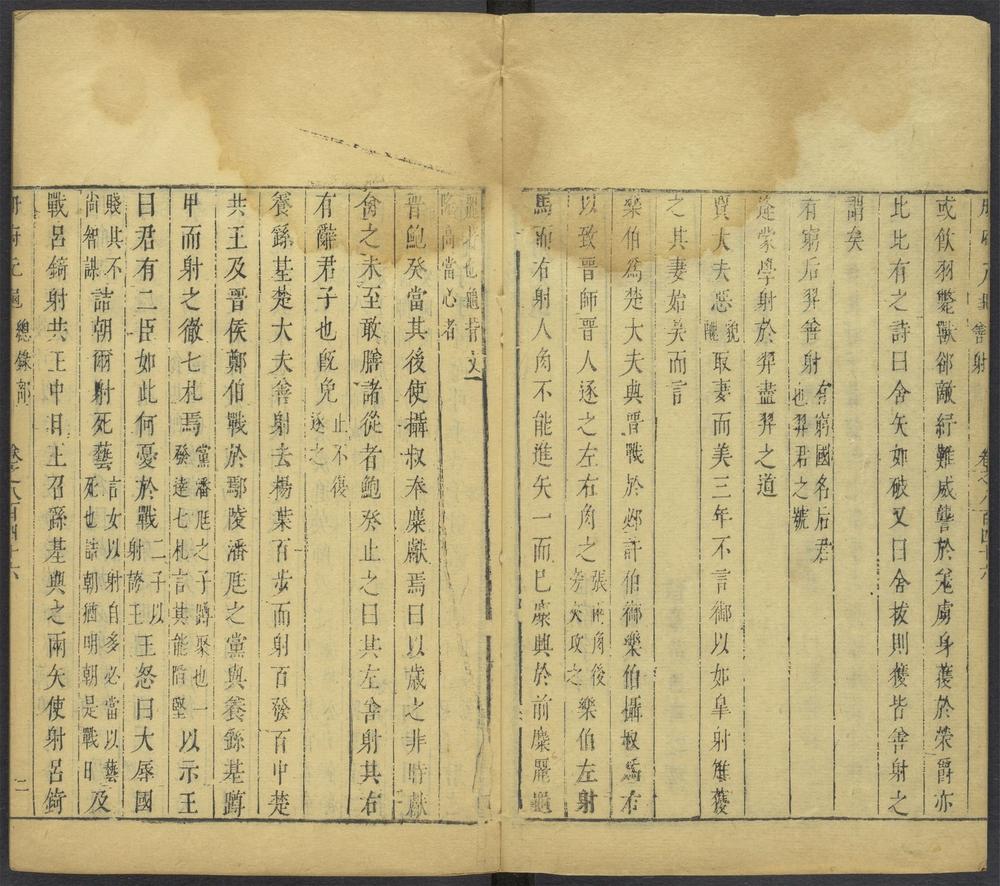 善射 卷之八百四十六
或飲羽斃獸郤敵紓難威讋於羌虜身蒦於榮爵亦
比比有之詩曰舍矢如破又曰舍拔則獲皆善射之
謂矣
有窮后羿善射有窮國名后君也羿君之號
逄蒙學射於羿盡羿之道
賈大夫惡貌醜取妻而美三年不言御以如皋射雉獲
之其妻始笑而言
樂伯爲楚大夫與晉戰於邲許伯御樂伯攝叔爲右
以致晉師晉人逐之左右角之張兩角後旁夾攻之樂伯左射
馬而右射人角不能進矢一而已麋興於前麋麗龜
麗著也龜背之隆高當心者
晉鮑癸當其後使攝叔奉麋獻焉曰以歲之非時獻
禽之未至敢膳諸從者鮑癸止之曰其左善射其右
有辭君子也旣免止不復逐之
養繇基楚大夫善射去楊葉百步而射百發百中楚
共王及晉侯鄭伯戰於鄢陵潘尫之黨與養繇基蹲
甲而射之徹七札焉黨潘尫之子蹲聚也一發達七札言其能陷堅以示王
曰君有二臣如此何憂於戰二子以射誇王王怒曰大辱國
賤其不尚智謀詰朝爾射死藝言女以射自多必當以藝死也詰朝猶明朝是戰日及
戰呂錡射共王中目王召繇基與之兩矢使射呂錡
冊府元龜 總錄部 卷之八百四十六 二